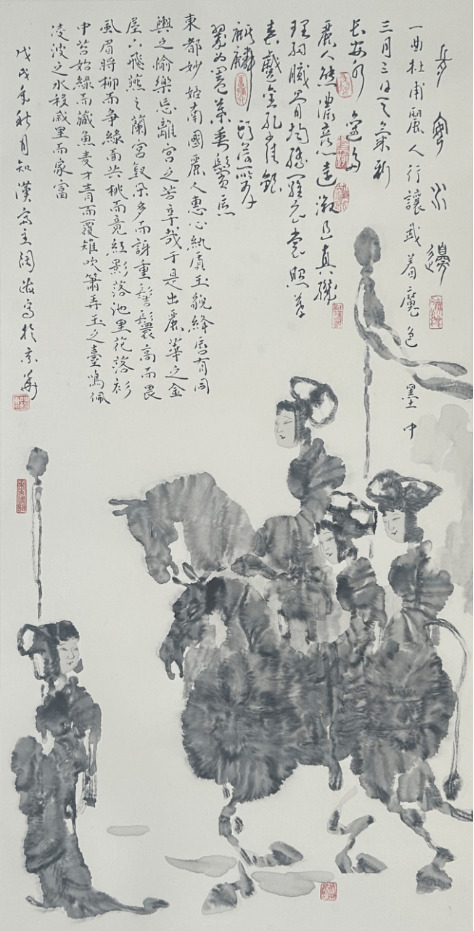 一曲杜甫麗人行讓我着魔 色墨中
三月三日天气新
長安水邊多
麗人態濃意遠淑且真肌
理細膩骨肉勻繡羅衣裳照暮
春蹙金孔雀銀
麒麟頭上何所有
翠為㔩葉垂鬢唇
東都妙姑南國麗人惠心紈質玉貌絳唇有同
輿之愉樂忘離宮之苦辛哉于是出麗華之金
屋下飛燕之蘭宮釵朵多而訝重髻鬟高而畏
風眉將柳而爭綠面共桃而競紅影落池里花落衫
中苔始綠而藏魚麦才青而覆雉吹簫弄玉之臺鳴佩
凌波之水移戚里而家富
戊戌年秋月 寫於京華